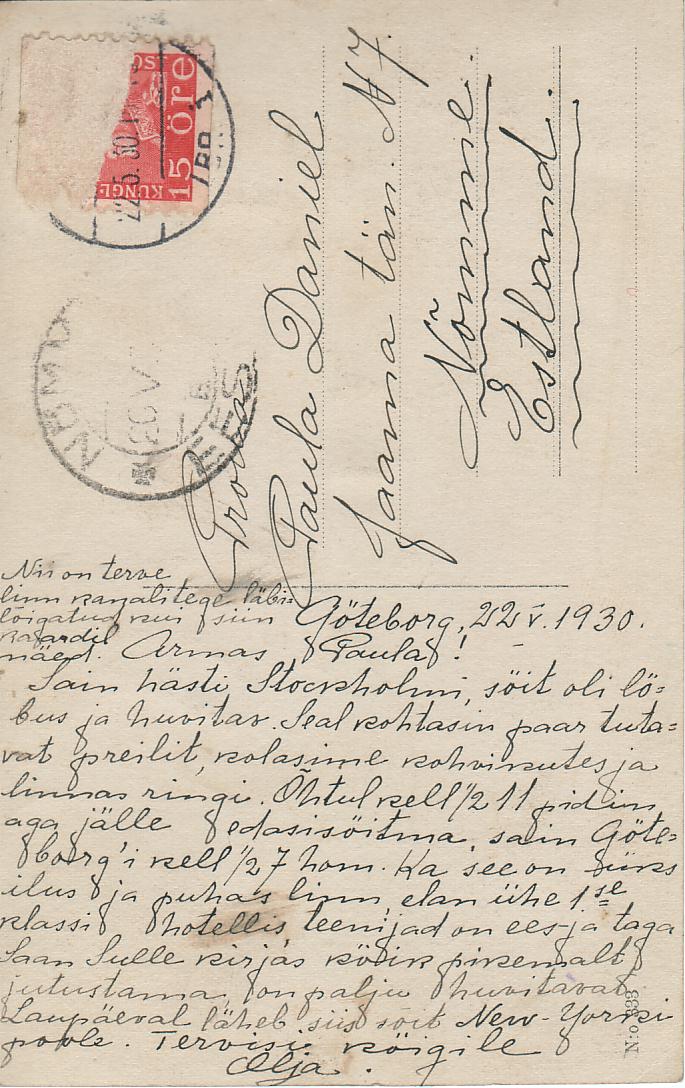 15 öre
KUNGL
22.5.30
NÕMME
26 V
EESTI
Prova
Paula Daniel
Jaama tän. N 7.
Nõmme.
Estland.
Nii on terve
linn kanalitega läbi-
lõigatud kui siin
kaardil
näed.
Göteborg, 22 V. 1930.
Armas Paula!
Sain hästi Stockholmi, sõit oli lõ-
bus ja huvitav. Seal kohtasin paar tuta-
vat preilit, kolasime kohvikutes ja
linnas ringi. Õhtul kell 1/2 11 pidin
aga jälle edasisõitma, sain Göte-
borg'i kell 1/2 7 hom. Ka see on üks
ilus ja puhas linn, elan ühe 1se
klassi hotellis, teenijad on ees-ja taga
Saan Sulle kirjas kõik pikemalt
jutustama, on palju huvitavat
Laupäeval läheb siis sõit New-Yorki
poole. Tervisi kõigile
Olja.
N:o 333